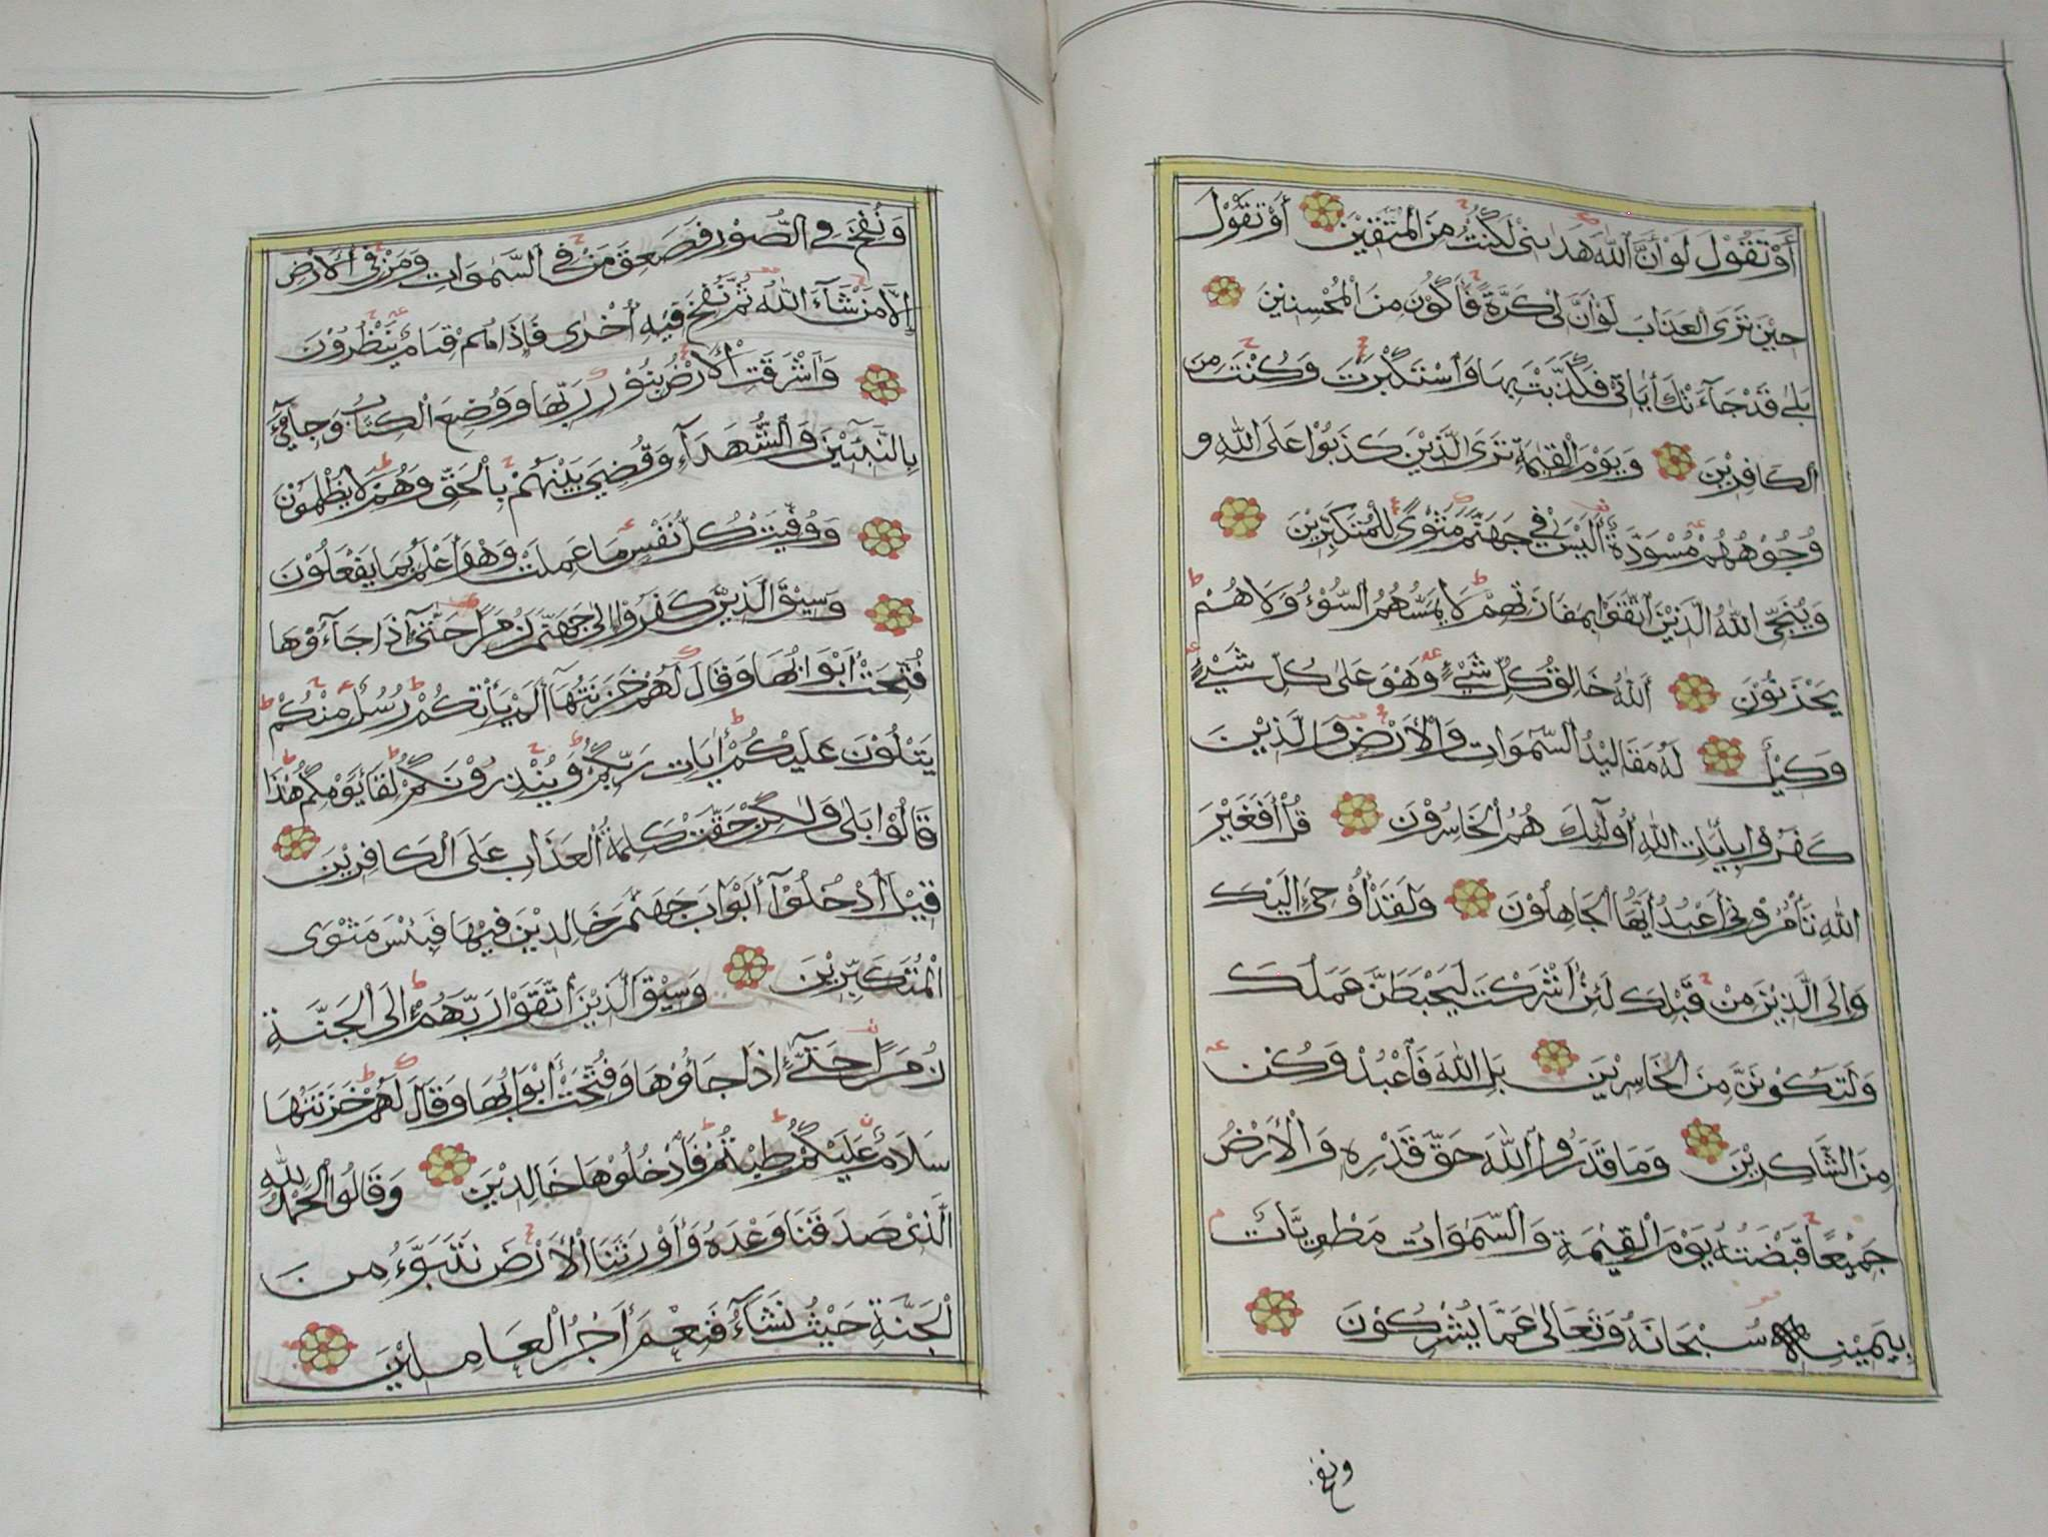 أَوْ تَقُوْلَ لَوْ أَنَّ اللّٰهَ هَدٰىنِيْ لَكُنْتُ مِنَ الْمُتَّقِيْنَ أَوْ تَقُوْلَ
حِيْنَ تَرَى الْعَذَابَ لَوْ أَنَّ لِيْ كَرَّةً فَأَكُوْنَ مِنَ الْمُحْسِنِيْنَ
بَلٰى قَدْ جَآءَتْكَ أٰيَاتِيْ فَكَذَّبْتَ بِهَا وَاسْتَكْبَرْتَ وَكُنْتَ مِنَ
الْكَافِرِيْنَ وَيَوْمَ الْقِيٰمَةِ تَرَى الَّذِيْنَ كَذَبُوْا عَلَى اللّٰهِ و
وُجُوْهُهُمْ مُسْوَدَّةٌ أَلَيْسَ فِيْ جَهَنَّمَ مَثْوًى لِلْمُتَكَبِّرِيْنَ
وَيُنَجِّي اللّٰهُ الَّذِيْنَ اتَّقَوْا بِمَفَازَتِهِمْ لَا يَمَسُّهُمُ السُّوْءُ وَلَا هُمْ
يَحْزَنُوْنَ اَللّٰهُ خَالِقُ كُلِّ شَيْءٍ وَهْوَ عَلٰى كُلِّ شَيْءٍ
وَكِيْلٌ لَهُ مَقَالِيْدُ السَّمٰوَاتِ وَالْأَرْضِ وَالَّذِيْنَ
كَفَرُوْا بِأٰيَاتِ اللّٰهِ أُولَٰٓئِكَ هُمُ الْخَاسِرُوْنَ قُلْ أَفَغَيْرَ
اللّٰهِ تَأْمُرُوْنِيْ أَعْبُدُ أَيُّهَا الْجَاهِلُوْنَ وَلَقَدْ أُوْحِيَ إِلَيْكَ
وَإِلَى الَّذِيْنَ مِنْ قَبْلِكَ لَئِنْ أَشْرَكْتَ لَيَحْبَطَنَّ عَمَلُكَ
وَلَتَكُوْنَنَّ مِنَ الْخَاسِرِيْنَ بَلِ اللّٰهَ فَاعْبُدْ وَكُنْ
مِنَ الشَّاكِرِيْنَ وَمَا قَدَرُوا اللّٰهَ حَقَّ قَدْرِهِ وَالْأَرْضُ
جَمِيْعًا قَبْضَتُهُ يَوْمَ الْقِيٰمَةِ وَالسَّمٰوَاتُ مَطْوِيَّاتٌ
بِيَمِيْنِهِ سُبْحَانَهُ وَتَعَالٰى عَمَّا يُشْرِكُوْنَ
ونفخ
وَنُفِخَ فِي الصُّوْرِ فَصَعِقَ مَنْ فِي السَّمٰوَاتِ وَمَنْ فِي الْأَرْضِ
إِلَّا مَنْ شَآءَ اللّٰهُ ثُمَّ نُفِخَ فِيْهِ أُخْرٰى فَإِذَا هُمْ قِيَامٌ يَنْظُرُوْنَ
وَأَشْرَقَتِ الْأَرْضُ بِنُوْرِ رَبِّهَا وَوُضِعَ الْكِتَابُ وَجِايْٓءَ
بِالنَّبِيِّيْنَ وَالشُّهَدَآءِ وَقُضِيَ بَيْنَهُمْ بِالْحَقِّ وَهُمْ لَا يُظْلَمُوْنَ
وَوُفِّيَتْ كُلُّ نَفْسٍ مَا عَمِلَتْ وَهْوَ أَعْلَمُ بِمَا يَفْعَلُوْنَ
وَسِيْقَ الَّذِيْنَ كَفَرُوْا إِلٰى جَهَنَّمَ زُمَرًا حَتّٰىٓ إِذَا جَآءُوْهَا
فُتِحَتْ أَبْوَابُهَا وَقَالَ لَهُمْ خَزَنَتُهَا أَلَمْ يَأْتِكُمْ رُسُلٌ مِنْكُمْ
يَتْلُوْنَ عَلَيْكُمْ أٰيَاتِ رَبِّكُمْ وَيُنْذِرُوْنَكُمْ لِقَآءَ يَوْمِكُمْ هٰذَا
قَالُوْا بَلٰى وَلٰكِنْ حَقَّتْ كَلِمَةُ الْعَذَابِ عَلَى الْكَافِرِيْنَ
قِيْلَ ادْخُلُوْآ أَبْوَابَ جَهَنَّمَ خَالِدِيْنَ فِيْهَا فَبِئْسَ مَثْوَى
الْمُتَكَبِّرِيْنَ وَسِيْقَ الَّذِيْنَ اتَّقَوْا رَبَّهُمْ إِلَى الْجَنَّةِ
زُمَرًا حَتّٰىٓ إِذَا جَاؤُهَا وَفُتِحَتْ أَبْوَابُهَا وَقَالَ لَهُمْ خَزَنَتُهَا
سَلَامٌ عَلَيْكُمْ طِبْتُمْ فَادْخُلُوْهَا خَالِدِيْنَ وَقَالُوا الْحَمْدُ لِلّٰهِ
الَّذِيْ صَدَقَنَا وَعْدَهُ وَأَوْرَثَنَا الْأَرْضَ نَتَبَوَّءُ مِنَ
الْجَنَّةِ حَيْثُ نَشَآءُ فَنِعْمَ أَجْرُ الْعَامِلِيْنَ